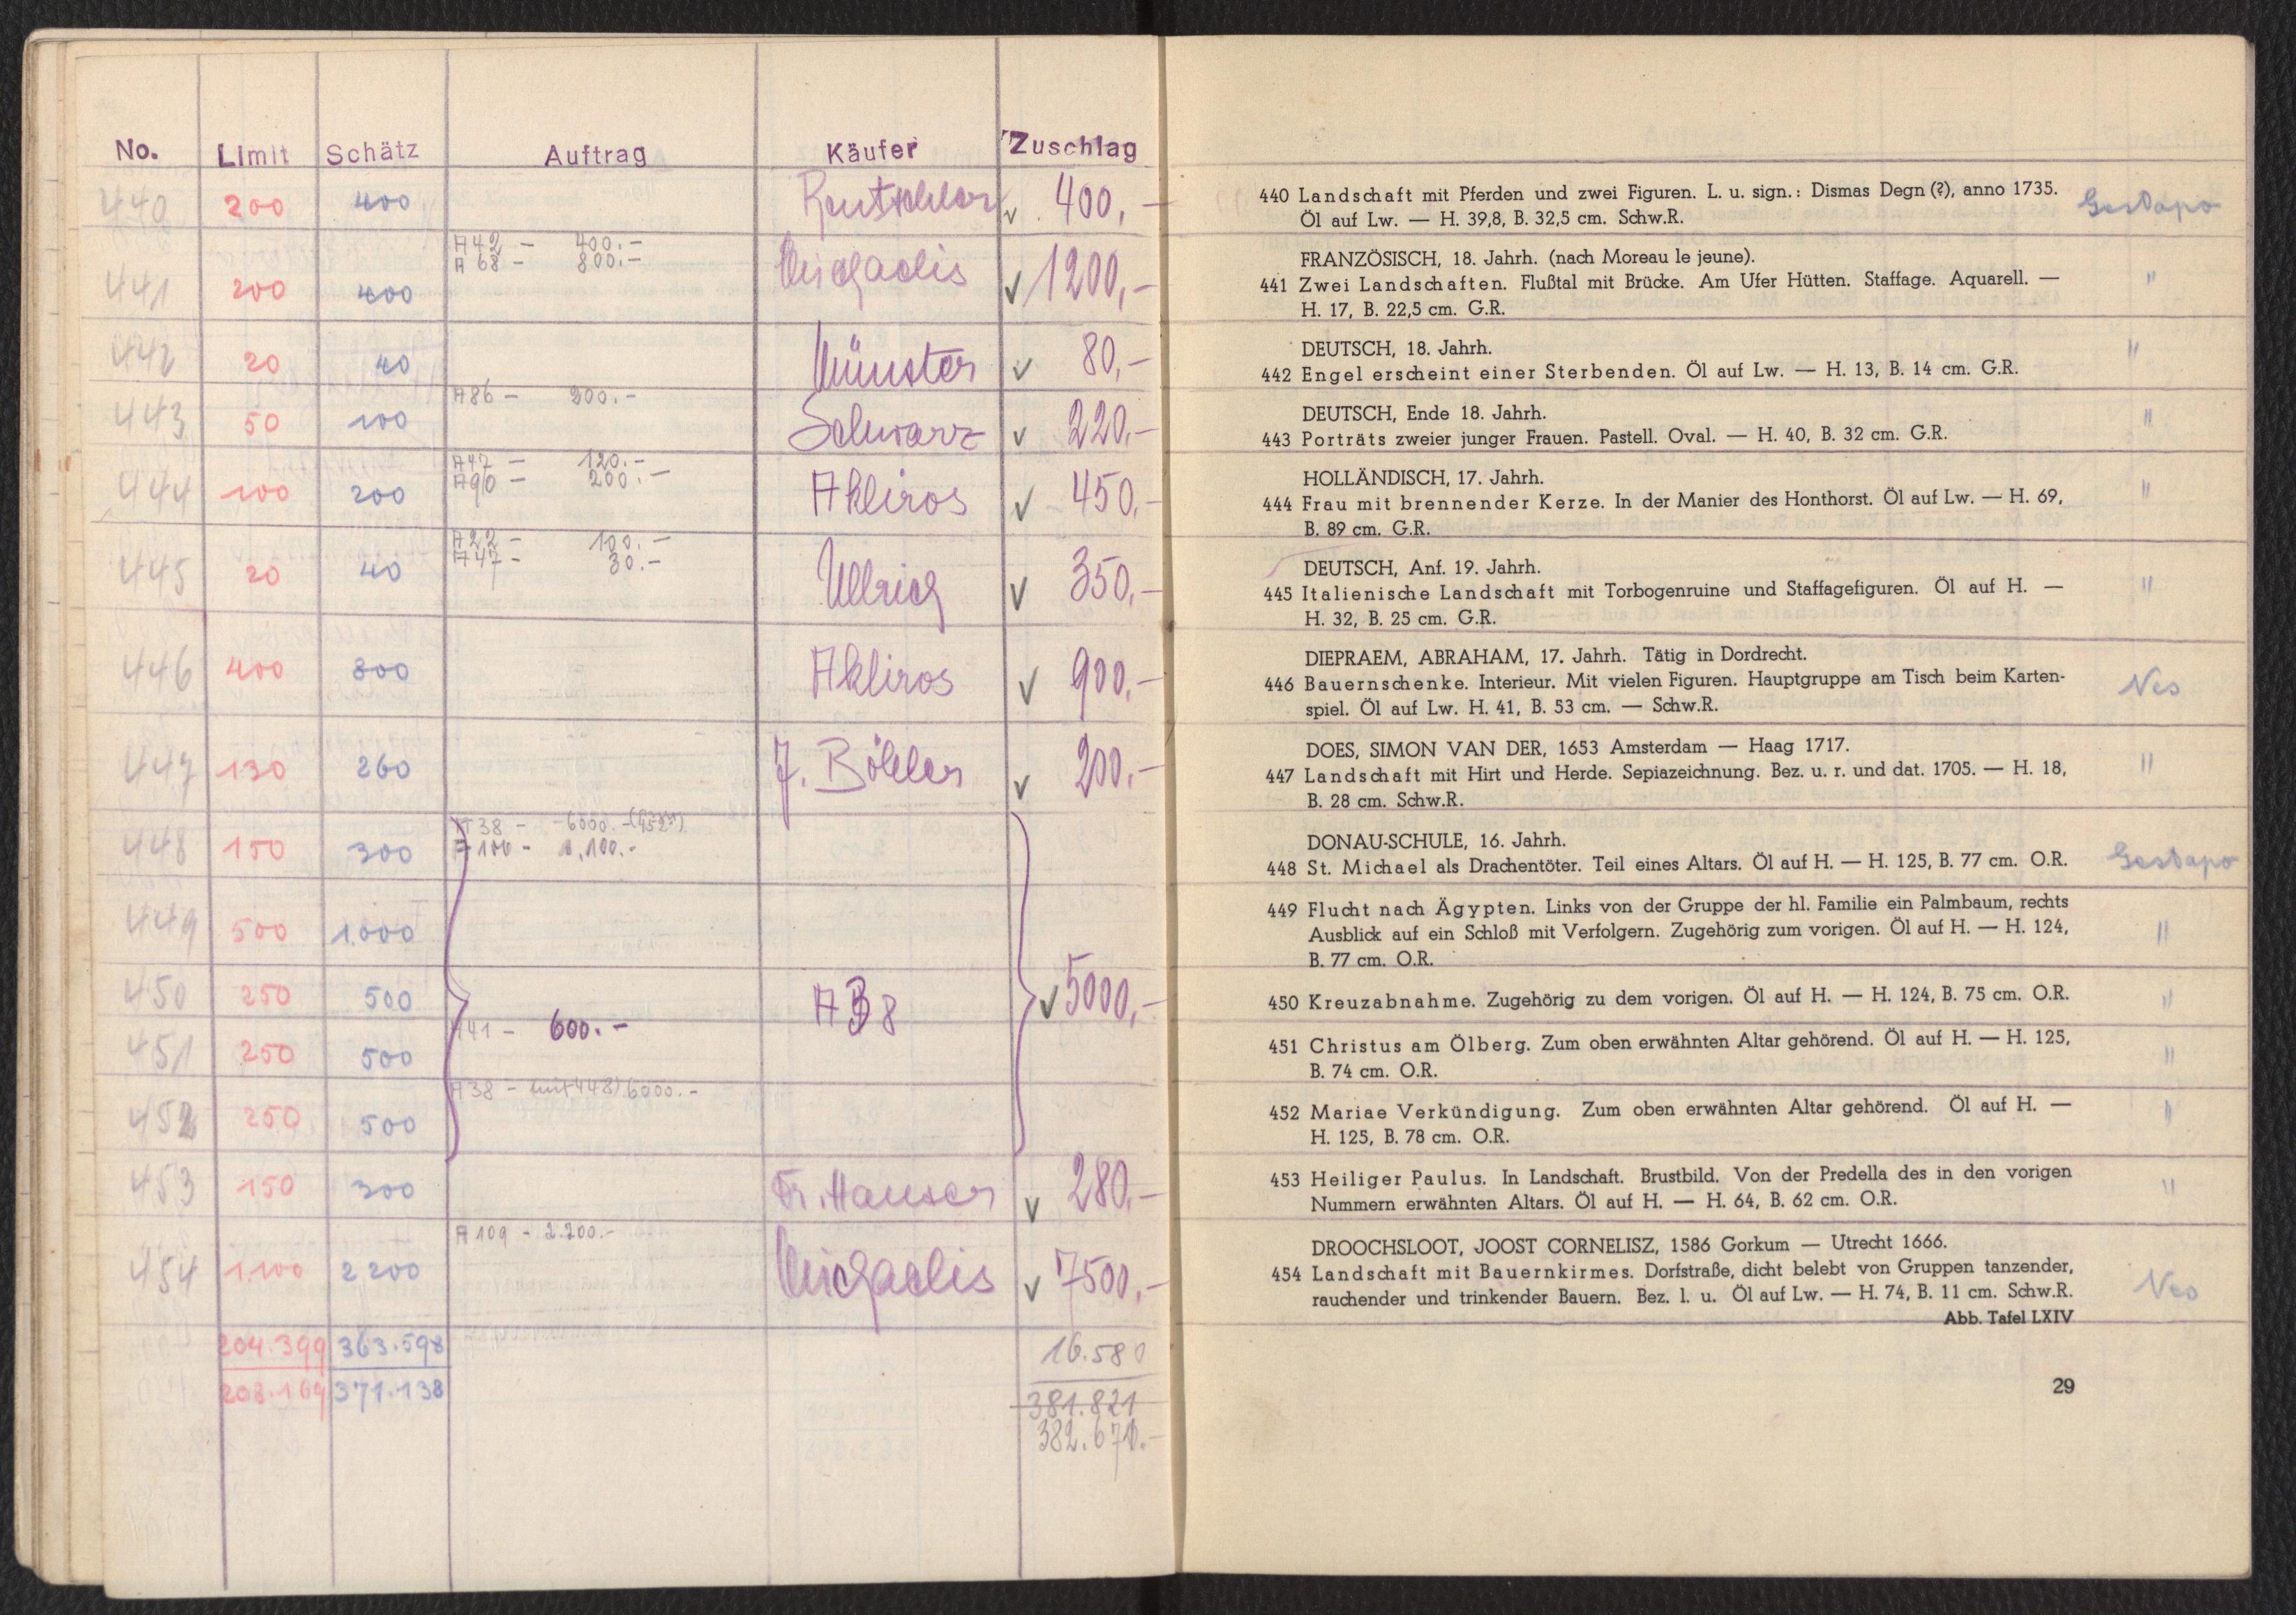 No. Limit Schätz Auftrag Käufer Zuschlag
440 200 400 400,-
A42 - 400.-
A 68 - 800.-
441 200 400 Michaelis √ 1200,-
442 20 40 Münster √ 80,-
A86 - 200.-
443 50 100 Schwarz √ 220,-
A47 - 120.-
A90 - 200.-
444 100 200 Akliros √ 450,-
A22 - 100.-
A47 - 30.-
445 20 40 Ullrich √ 350,-
446 400 800 Akliros √ 900,-
447 130 260 J. Böhler √ 200,-
A38 - 6000.-
A100 - 1,100.-
448 150 300
449 500 1.000
450 250 500 √ 5000,-
A41 - 600.-
451 250 500
A38 - (mit 448) 6000.-
452 250 500
453 150 300 Fr. Hauser √ 280,-
A109 - 2.200.-
454 1.100 2200 Michaelis √ 7500,-
204.399 363.598 16.580
208.169 371.138 381.821
382.670.-
440 Landschaft mit Pferden und zwei Figuren. L. u. sign.: Dismas Degn (?), anno 1735. Gestapo
Öl auf Lw. — H. 39,8, B. 32,5 cm. Schw.R.
FRANZÖSISCH, 18. Jahrh. (nach Moreau le jeune).
441 Zwei Landschaften. Flußtal mit Brücke. Am Ufer Hütten. Staffage. Aquarell. — "
H. 17, B. 22,5 cm. G.R.
DEUTSCH, 18. Jahrh. "
442 Engel erscheint einer Sterbenden. Öl auf Lw. — H. 13, B. 14 cm. G.R.
DEUTSCH, Ende 18. Jahrh. "
443 Porträts zweier junger Frauen. Pastell. Oval. — H. 40, B. 32 cm. G.R.
HOLLÄNDISCH, 17. Jahrh. "
444 Frau mit brennender Kerze. In der Manier des Honthorst. Öl auf Lw. — H. 69,
B. 89 cm. G.R.
DEUTSCH, Anf. 19. Jahrh. "
445 Italienische Landschaft mit Torbogenruine und Staffagefiguren. Öl auf H. —
H. 32, B. 25 cm. G.R.
DIEPRAEM, ABRAHAM, 17. Jahrh. Tätig in Dordrecht.
446 Bauernschenke. Interieur. Mit vielen Figuren. Hauptgruppe am Tisch beim Karten- Nes
spiel. Öl auf Lw. H. 41, B. 53 cm. — Schw.R.
DOES, SIMON VAN DER, 1653 Amsterdam — Haag 1717.
447 Landschaft mit Hirt und Herde. Sepiazeichnung. Bez. u. r. und dat. 1705. — H. 18, "
B. 28 cm. Schw.R.
DONAU-SCHULE, 16. Jahrh.
448 St. Michael als Drachentöter. Teil eines Altars. Öl auf H. — H. 125, B. 77 cm. O.R. Gestapo
449 Flucht nach Ägypten. Links von der Gruppe der hl. Familie ein Palmbaum, rechts
Ausblick auf ein Schloß mit Verfolgern. Zugehörig zum vorigen. Öl auf H. — H. 124, "
B. 77 cm. O.R.
450 Kreuzabnahme. Zugehörig zu dem vorigen. Öl auf H. — H. 124, B. 75 cm. O.R. "
451 Christus am Ölberg. Zum oben erwähnten Altar gehörend. Öl auf H. — H. 125, "
B. 74 cm. O.R.
452 Mariae Verkündigung. Zum oben erwähnten Altar gehörend. Öl auf H. — "
H. 125, B. 78 cm. O.R.
453 Heiliger Paulus. In Landschaft. Brustbild. Von der Predella des in den vorigen "
Nummern erwähnten Altars. Öl auf H. — H. 64, B. 62 cm. O.R.
DROOCHSLOOT, JOOST CORNELISZ, 1586 Gorkum — Utrecht 1666.
454 Landschaft mit Bauernkirmes. Dorfstraße, dicht belebt von Gruppen tanzender, Nes
rauchender und trinkender Bauern. Bez. l. u. Öl auf Lw. — H. 74, B. 11 cm. Schw.R.
Abb. Tafel LXIV
29